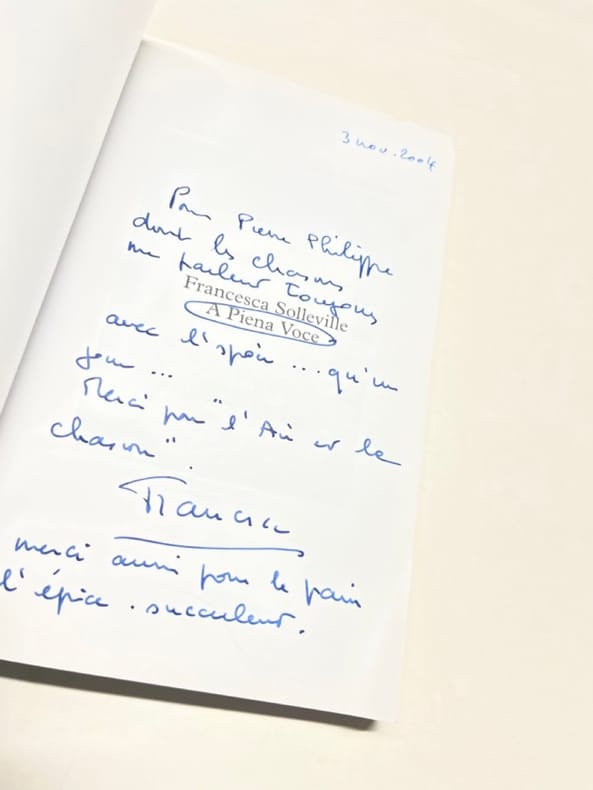 3 nov. 2004
Pour Pierre Philippe
dont les chansons
me parlent toujours
Francesca Solleville
A Piena Voce
avec l'espoir ... qu'un
jour ...
Merci pour "l'Air et la
chanson".
Francesca
merci aussi pour le pain
l'épice . succulent.